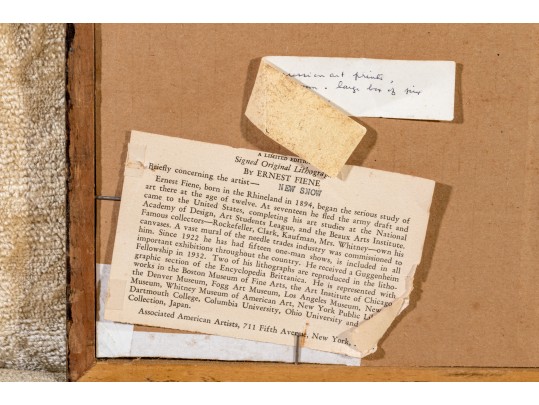 ression art prints,
. large box of six
A LIMITED EDITION
Signed Original Lithograph
By ERNEST FIENE
Briefly concerning the artist—
NEW SNOW
Ernest Fiene, born in the Rhineland in 1894, began the serious study of
art there at the age of twelve. At seventeen he fled the army draft and
came to the United States, completing his art studies at the National
Academy of Design, Art Students League, and the Beaux Arts Institute.
Famous collectors—Rockefeller, Clark, Kaufman, Mrs. Whitney—own his
canvases. A vast mural of the needle trades industry was commissioned to
him. Since 1922 he has had fifteen one-man shows, is included in all
important exhibitions throughout the country. He received a Guggenheim
Fellowship in 1932. Two of his lithographs are reproduced in the litho-
graphic section of the Encyclopedia Brittanica. He is represented with
works in the Boston Museum of Fine Arts, the Art Institute of Chicago
the Denver Museum, Fogg Art Museum, Los Angeles Museum, New
Museum, Whitney Museum of American Art, New York Public L
Dartmouth College, Columbia University, Ohio University and
Collection, Japan.
Associated American Artists, 711 Fifth Avenue, New York,